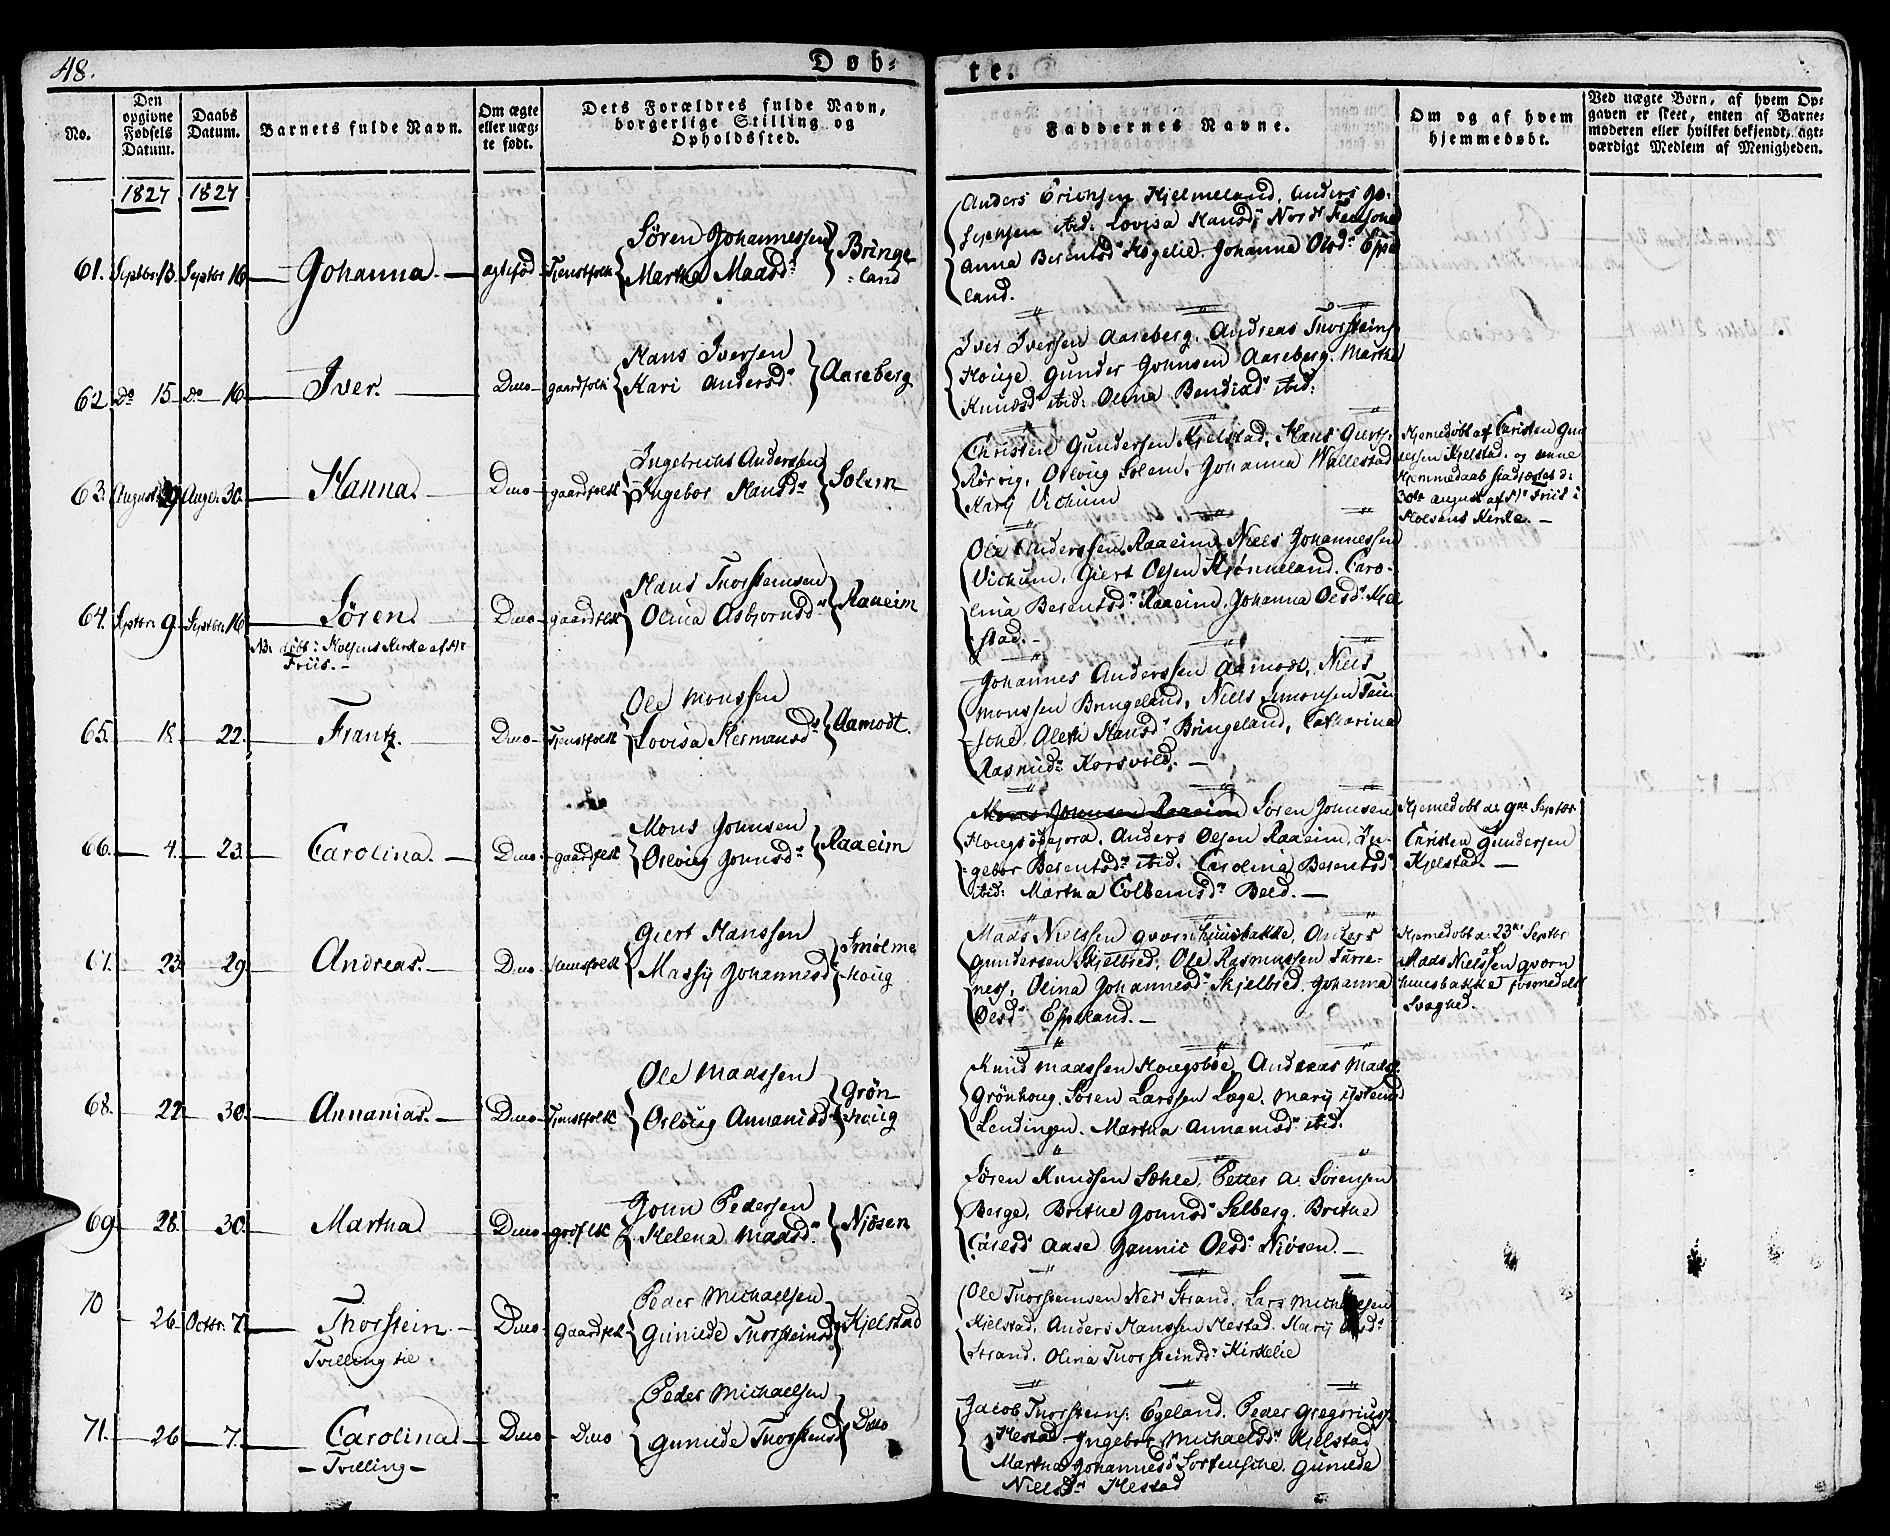 48.
Døb-
te.
No.
Den opgivne Fødsels Datum.
Daabs Datum.
Barnets fulde Navn.
Om ægte eller uægte født.
Dets Forældres fulde Navn, borgerlige Stilling og Opholdssted.
Faddernes Navne.
Om og af hvem hjemmedøbt.
Ved uægte Børn, af hvem Opgaven er skeet, enten af Barnemoderen eller hvilket bekjendt, agtværdigt Medlem af Menigheden.
1827 1827
61. Septbr 13. Septbr 16 Johanna. ægtefød Tjenstfolk Søren Johannessen Martha Maadsd. Bringeland
Anders Erichsen Hjelmeland, Anders
ibid: Lovisa Hansd. Nord
anna Berentsd Høgelie. Johanna Olsd. Espe
land.
62. do 15. do 16. Iver. Duo gaardfolk Hans Iversen Kari Andersd. Aareberg
Iver Iversen Aareberg. Andreas Thorsteins.
Houge Gunder Johnsen Aareberg. Martha
Knudsd ibid: Olina Bendixd ibid:
63. August 29 Augt. 30. Hanna. Duo gaardfolk Ingebricht Anderssen Ingebor Hansd. Solem
Christen Gundersen Kjelstad, Hans
Rørvig, Oslöug Solem, Johanna Wallestad
Marij Vichum
Hjemedöbt af Christen Gun
dersen Kjelstad. og denne
Hjemmedaab stadfæstet d:
30te august af Hr Friis i
Holsens Kirke. —
64. Septbr. 9. Septbr. 16 Sören. Duo gaardfolk Hans Thorsteinsen Olina Asbjörnsd. Raaeim
NB. döbt i Holsens Kirke af Hr
Friis. —
Ole Anderssen Raaeim, Niels Johannessen
Vichum, Giert Olsen Kjönneland. Caro-
lina Berentsd. Raaeim, Johanna Olsd. Kjel
stad. —
65. 18. 22. Frantz. Duo Tjenstfolk Ole Monssen Lovisa Hermansd. Aamodt.
Johannes Anderssen Aamodt, Niels
Monssen Bringeland, Niels Simonsen
Aleth Hansd. Bringeland, Catharina
Rasmusd. Korsvold. —
66. 4. 23. Carolina. Duo gaardfolk Mons Johnsen Oslöug Johnsd. Raaeim
Mons Johnsen Raaeim Sören Johnsen
Anders Olsen Raaeim, In-
gebor Berentsd. ibid. Carolina Berentsd
ibid: Martha Colbensd. Beld. —
Hjemedöbt d. 9de Septbr
Christen Gundersen
Kjelstad. —
67. 23. 29. Andreas. Duo Huusfolk Giert Hanssen Massij Johannesd Smölme houg
Mads Nielssen qværnhuusbakke, Anders
Gundersen Skjelbred. Ole Rasmussen Turre-
ness, Olina Johannesd. Skjelbred. Johanna
Olsd. Espeland. —
Hjemedöbt d. 23de Septbr
Mads Nielssen qværn
huusbakke formedelst
Svaghed.
68. 22. 30. Annanias. Duo Tjenstfolk Ole Madssen Oslöug Annanisd. Grön houg
Knud Madssen Hougsböe, Andreas Mads.
Grönhoug, Sören Larssen Læge. Marij
Lendingen. Martha Annanisd. ibid.
69. 28. 30. Martha. Duo grdfolk John Pedersen Helena Madsd. Njösen
Sören Knudsen Sæhle, Petter A. Sörensen
Berge, Brithe Johnsd Selberg. Brithe
Aase Jannic Olsd. Njösen. —
70 26. Octbr. 7. Thorstein. Duo Gaardfolk Peder Michaelsen Gunilde Thorsteinsd. Kjelstad
Tvilling til
Ole Thorsteinsen Nedr Strand. Lars Michaelsen
Kjelstad, Anders Hanssen Hestad. Marij Olsd.
Strand. Olina Thorsteinsd. Kirkelie
71. 26 7. Carolina. Duo Duo Peder Michaelsen Gunilde Thorsteinsd Duo
— Tvilling —
Jacob Thorsteins. Egeland. Peder Gregorius.
Hestad Ingebor Michaelsd. Kjelstad
Martha Johannesd Gunilde
Nielsd. Hestad